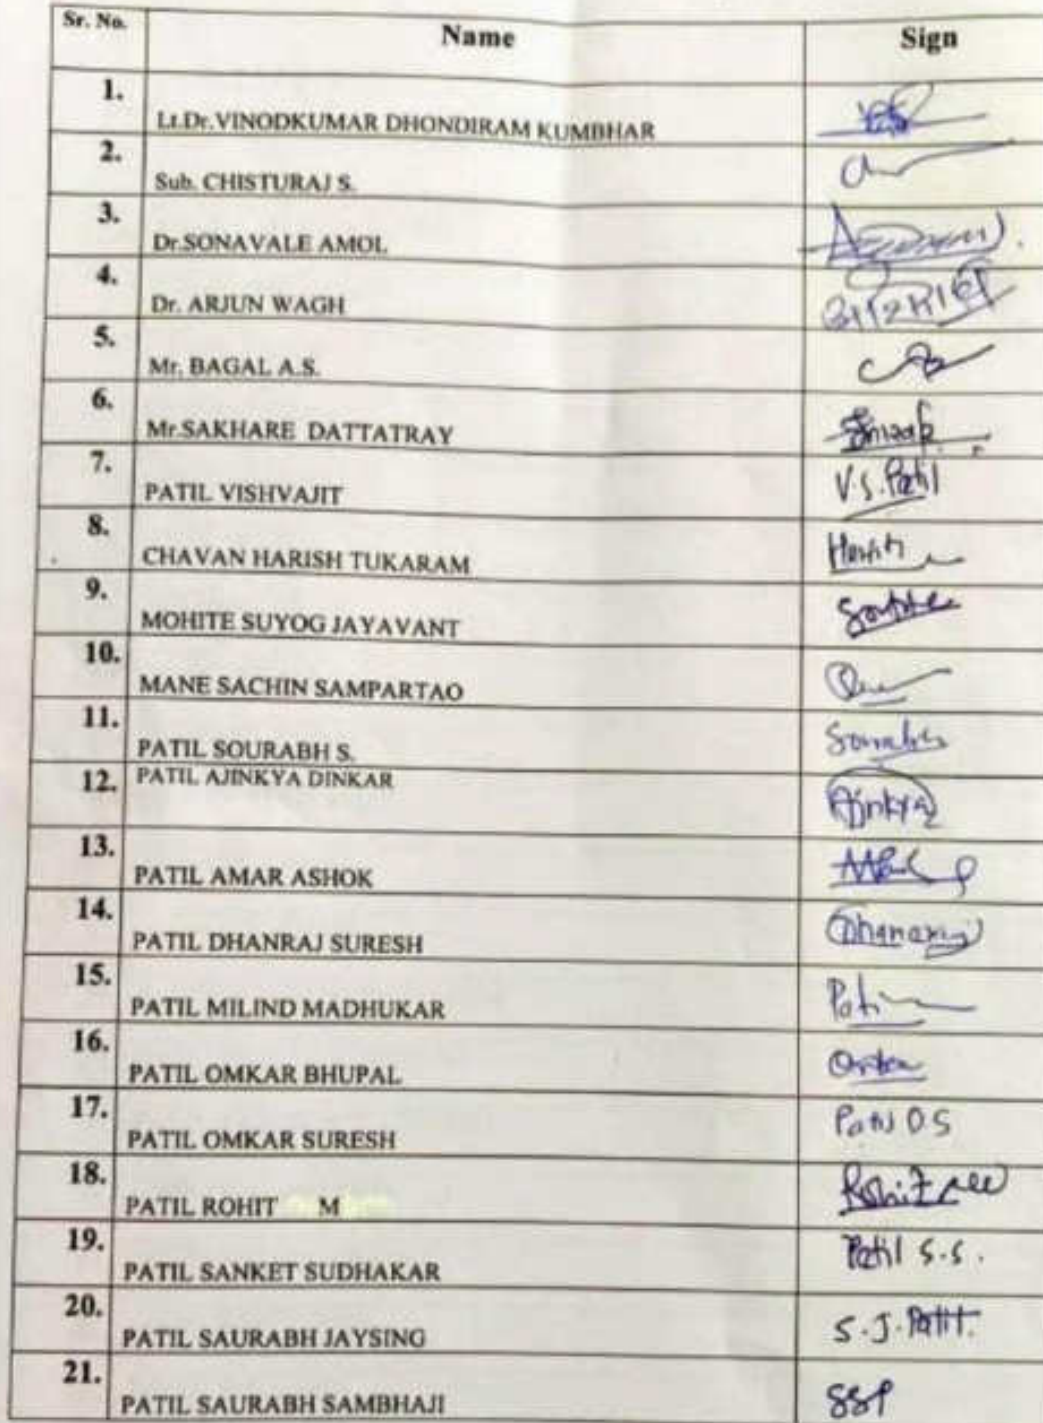 Sr. No. Name Sign
1. Lt.Dr.VINODKUMAR DHONDIRAM KUMBHAR
2. Sub. CHISTURAJ S.
3. Dr.SONAVALE AMOL
4. Dr. ARJUN WAGH
5. Mr. BAGAL A.S.
6. Mr.SAKHARE DATTATRAY
7. PATIL VISHVAJIT V.S.Patil
8. CHAVAN HARISH TUKARAM Harish
9. MOHITE SUYOG JAYAVANT
10. MANE SACHIN SAMPARTAO
11. PATIL SOURABH S. Sourabh
12. PATIL AJINKYA DINKAR Ajinkya
13. PATIL AMAR ASHOK
14. PATIL DHANRAJ SURESH Dhanaraj
15. PATIL MILIND MADHUKAR
16. PATIL OMKAR BHUPAL
17. PATIL OMKAR SURESH Patil O.S
18. PATIL ROHIT M Rohit
19. PATIL SANKET SUDHAKAR Patil S.S.
20. PATIL SAURABH JAYSING S.J.Patil.
21. PATIL SAURABH SAMBHAJI SSP